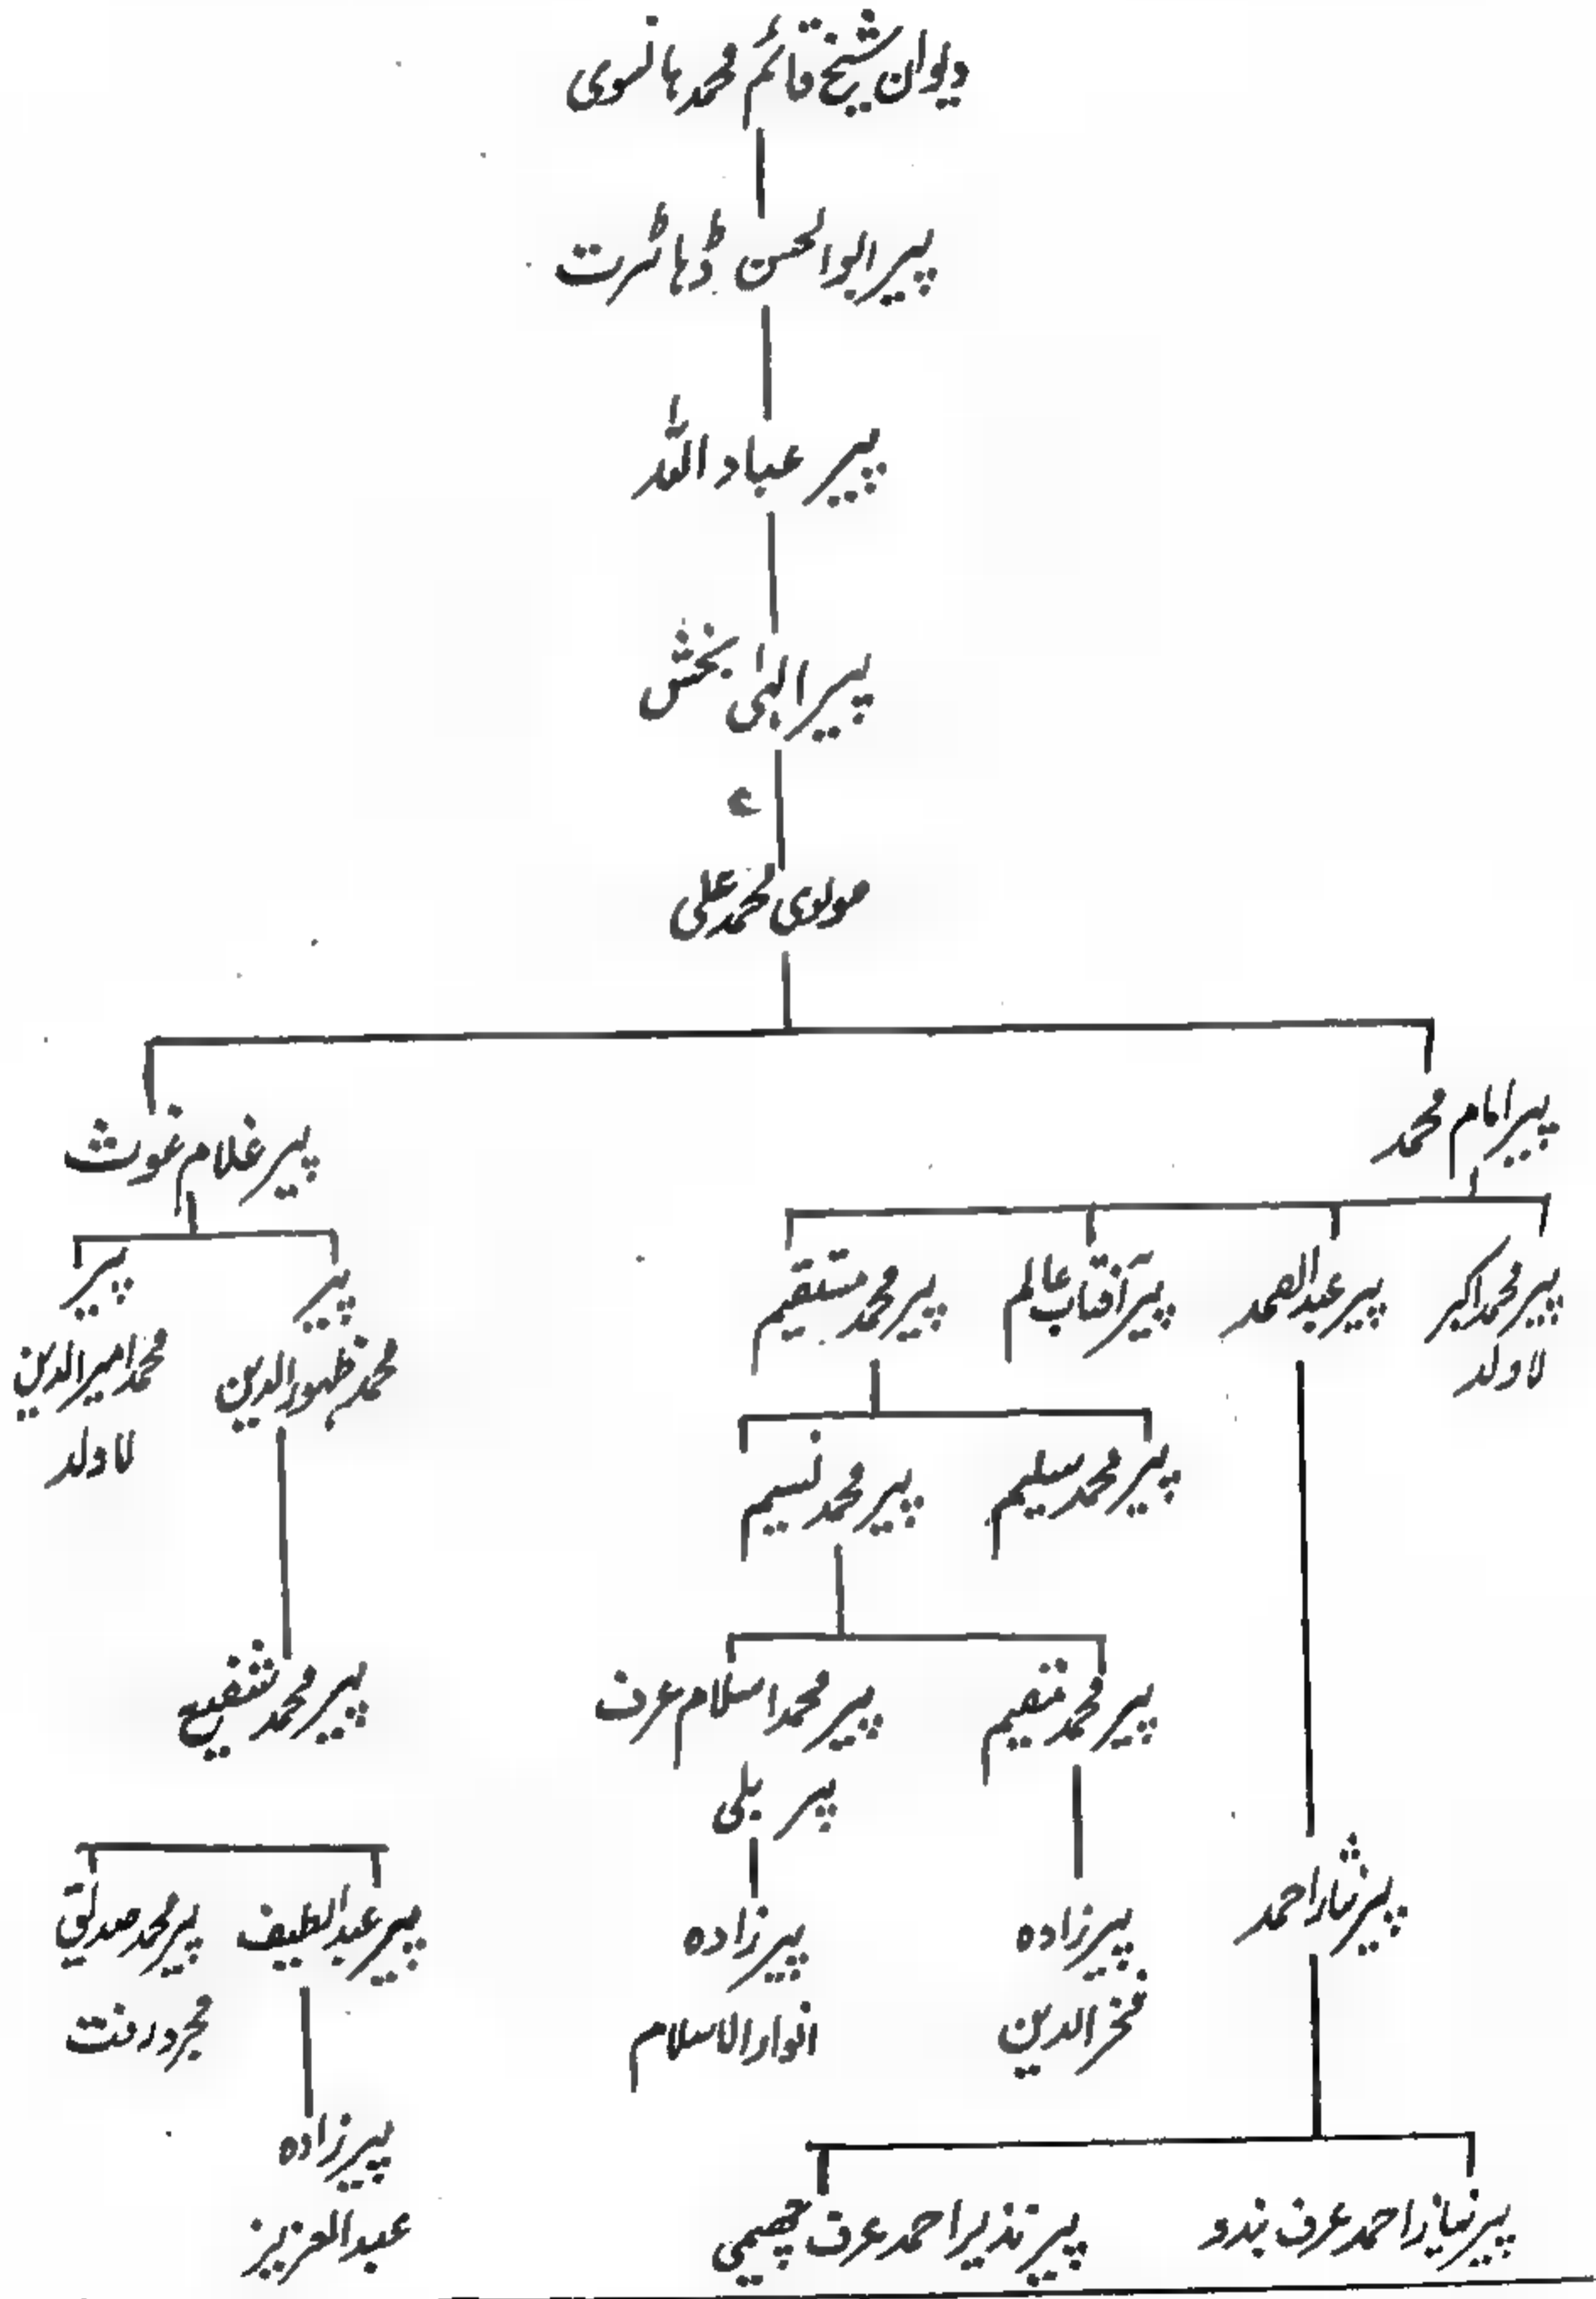 دیوان شیخ قائم محمد ہانسوی
پیر ابوالحسن ڈہاٹرت
پیر عباد اللہ
پیر الٰہی بخش
مولوی محمد علی
پیر امام محمد
پیر غلام غوث
پیر محمد اکبر
لاولد
پیر عبدالصمد
پیر آفتاب عالم
پیر محمد مستقیم
پیر
محمد ظہورالدین
پیر
محمد امیرالدین
لاولد
پیر محمد سلیم
پیر محمد نسیم
پیر محمد مقیم
پیر محمد اسلام عرف
پیر بلی
پیر محمد شفیع
پیر نثار احمد
پیرزادہ
فخرالدین
پیرزادہ
انوارالاسلام
پیر عبداللطیف
پیر محمد صدیق
مجرد رفت
پیرزادہ
عبدالعزیز
پیر نیاز احمد عرف بندو
پیر نذیر احمد عرف چھیمی